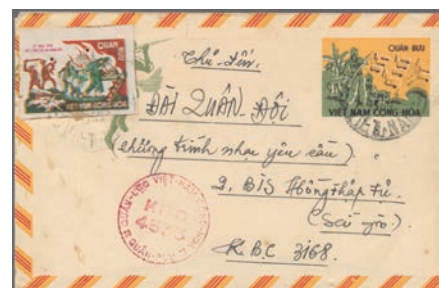 QUÂN BƯU
QUÂN
VIỆT NAM CỘNG HÒA
VIỆT NAM CỘNG HÒA
Thư-Tín.
ĐÀI QUÂN-ĐỘI
(chương trình nhạc yêu cầu).
9. BIS Hồng Thập Tự.
(Sài gòn).
K.B.C 3168.
QUÂN-LỰC VIỆT-NAM CỘNG-HÒA
KBC